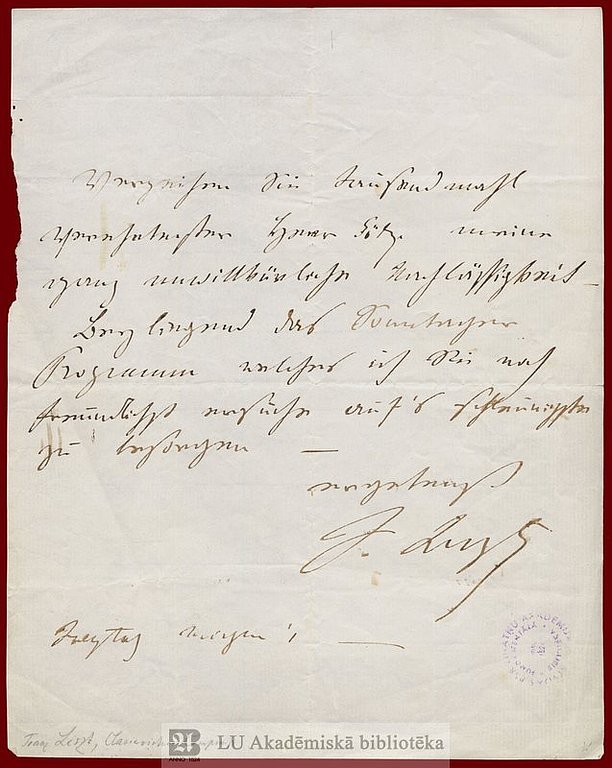 Verzeihen Sie tausendmahl
Verehrtester Herr Götz. meine
ganz unwillkürliche Nachlässigkeit
Bey liegend das Sonntacher
Programm welches ich Sie noch
freundlichst ersuche auf's schleunigste
zu besorgen —
ergebenst
F. Liszt
Freytag Morgen
Franz Liszt,
LU Akadēmiskā bibliotēka
ANNO 1524